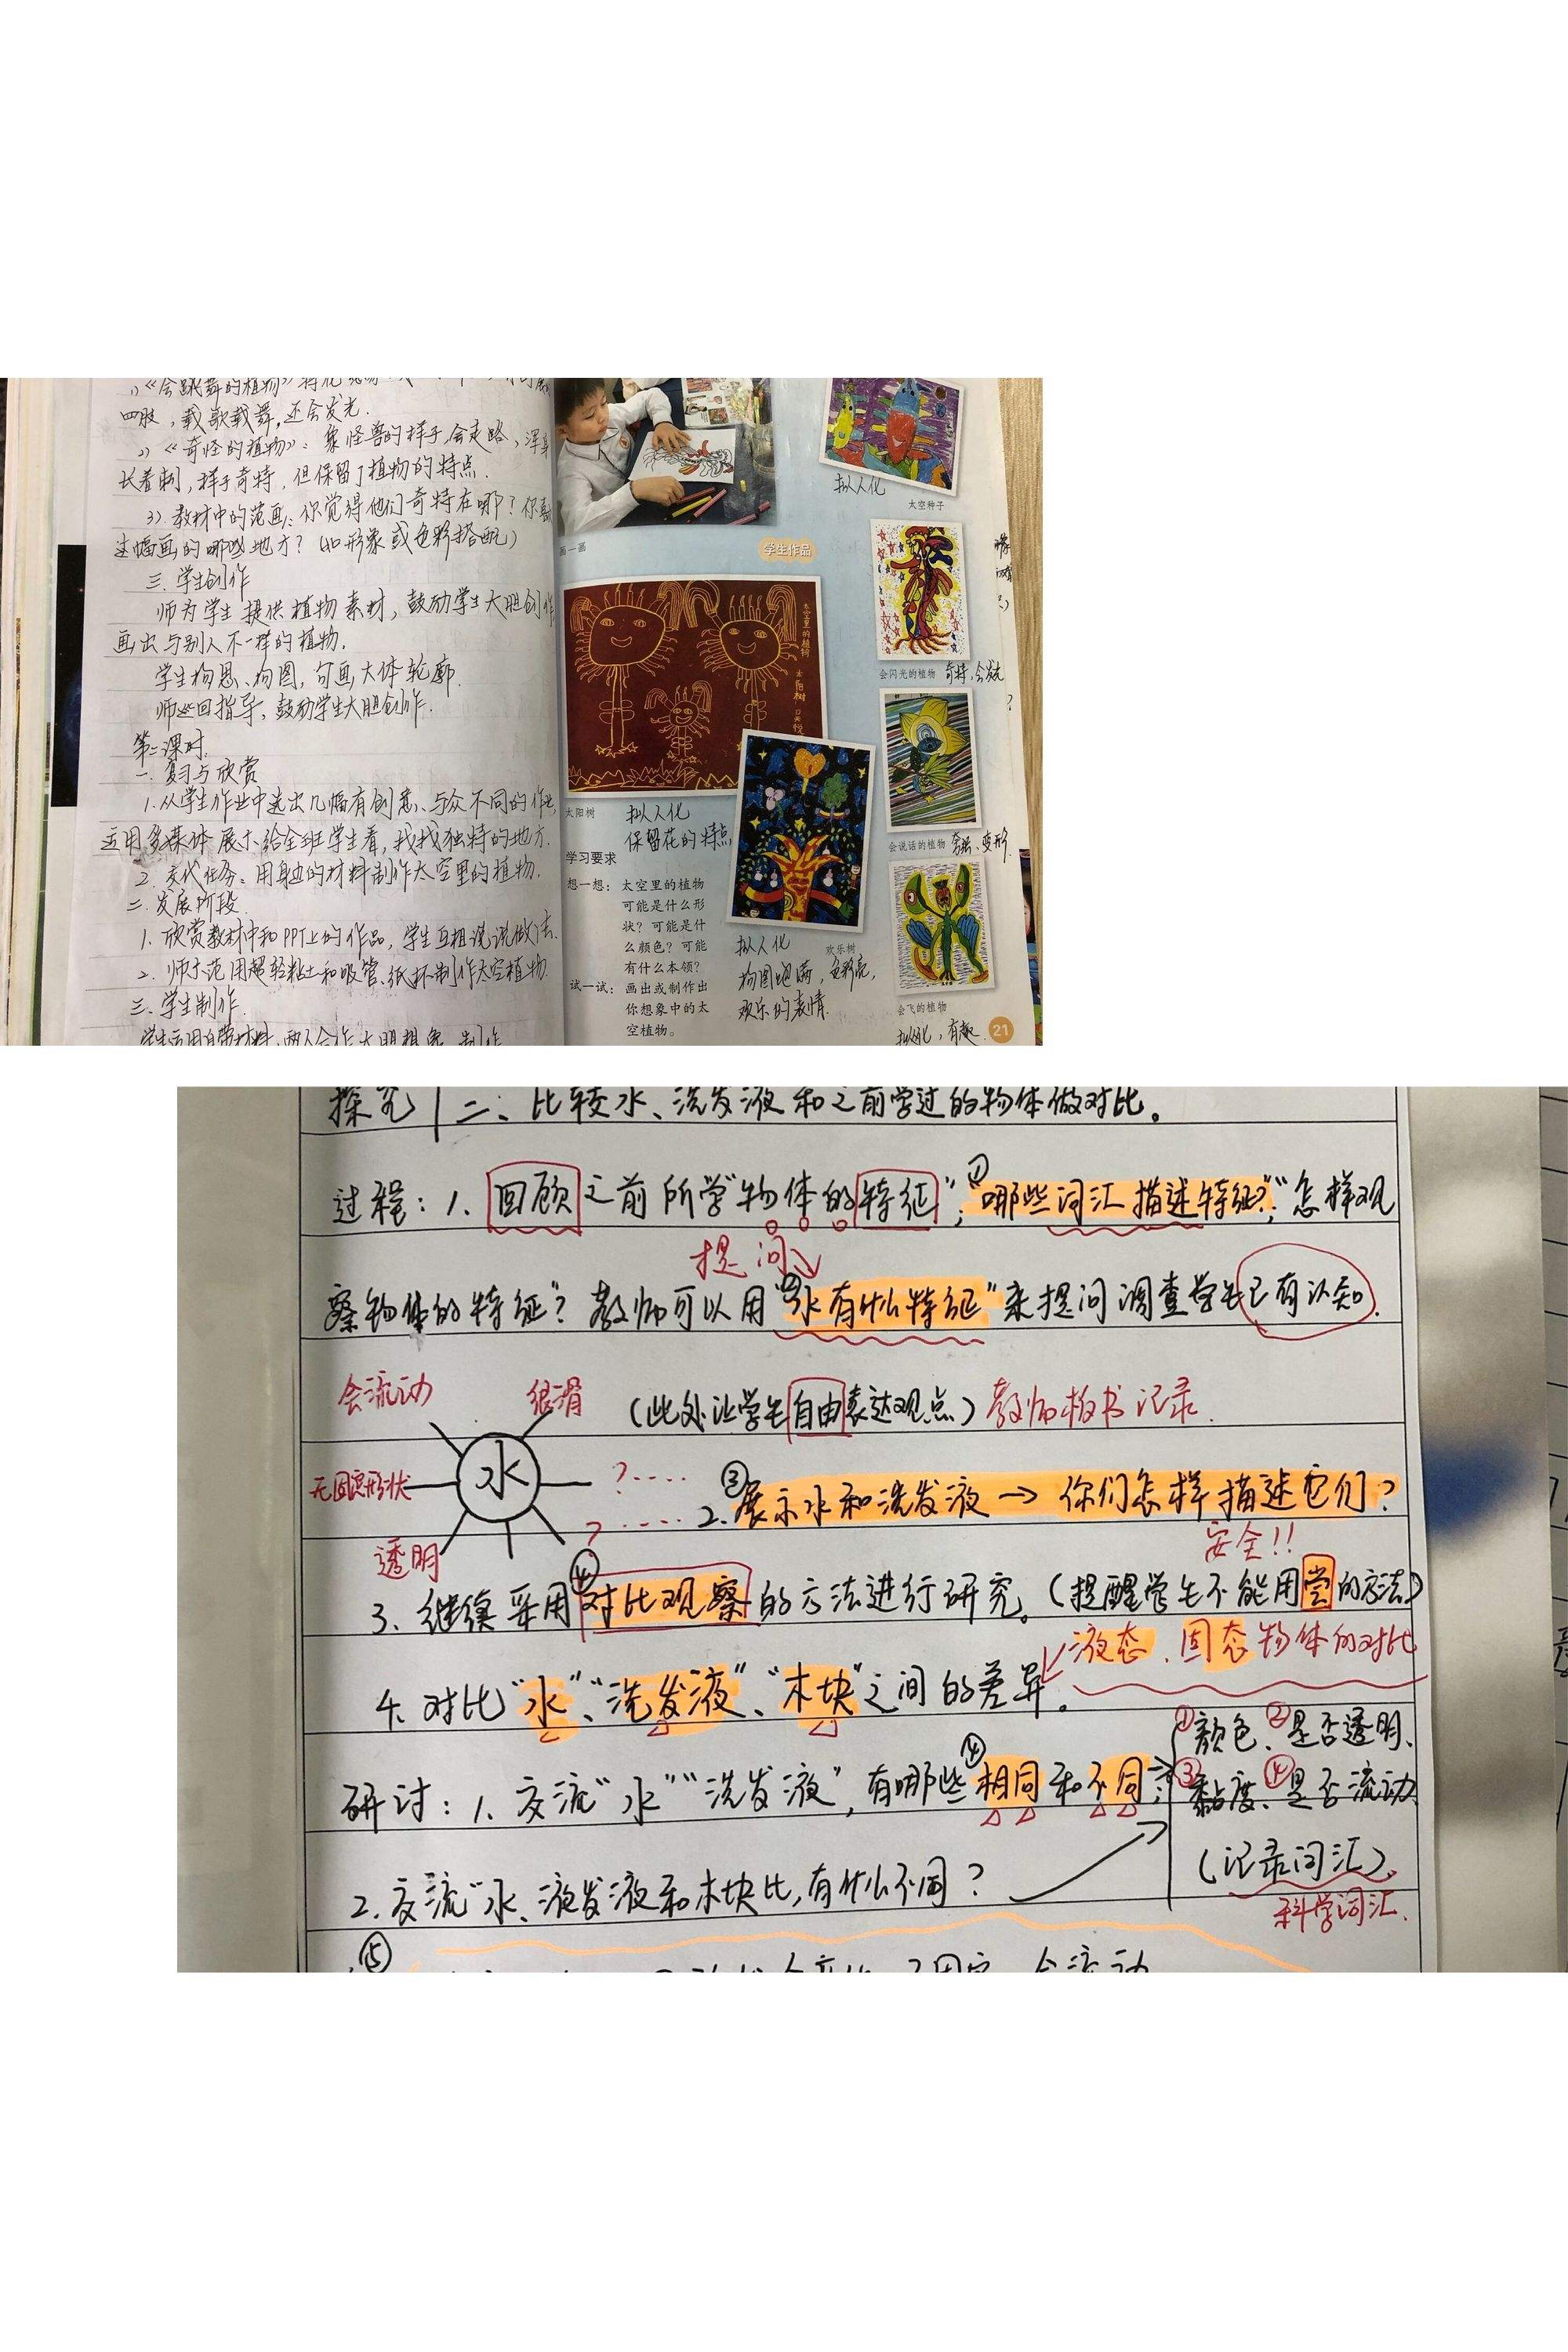 1)《会跳舞的植物》
四肢，载歌载舞，还会发光.
2)《奇怪的植物》：象怪兽的样子,会走路，浑身
长着刺，样子奇特，但保留了植物的特点.
3) 教材中的范画：你觉得他们奇特在哪？你喜
这幅画的哪些地方？（如形象或色彩搭配）
三. 学生创作
师为学生提供植物素材，鼓励学生大胆创作
画出与别人不一样的植物.
学生构思、构图，勾画大体轮廓.
师巡回指导、鼓励学生大胆创作.
第二课时.
一. 复习与欣赏
1. 从学生作业中选出几幅有创意、与众不同的作业
运用多媒体展示给全班学生看，找找独特的地方.
2. 交代任务：用身边的材料制作太空里的植物.
二. 发展阶段
1. 欣赏教材中和PPT上的作品，学生互相说说做法.
2. 师示范用超轻粘土和吸管、纸杯制作太空植物.
三. 学生制作.
学生运用自带材料，两人合作，大胆想象，制作
画一画
学生作品
拟人化
太空种子
太空里的植物
太阳树
会闪光的植物 奇特,会发光
会说话的植物 夸张、变形.
太阳树
拟人化
保留花的特点
学习要求
想一想：太空里的植物
可能是什么形
状？可能是什
么颜色？可能
有什么本领？
试一试：画出或制作出
你想象中的太
空植物。
拟人化
欢乐树
构图饱满，色彩亮，
欢乐的表情.
会飞的植物
拟人化，有趣.
21
探究 二、比较水、洗发液和之前学过的物体做对比。
过程：1、回顾之前所学"物体的特征"，①"哪些词汇描述特征？""怎样观
提问
察物体的特征"？教师可以用②"水有什么特征"来提问调查学生已有认知.
会流动
很滑
（此处让学生自由表达观点）教师板书记录.
水
无固定形状
?....
透明
?....
③
2.展示水和洗发液 → 你们怎样描述它们？
安全!!
3、继续采用④对比观察的方法进行研究。（提醒学生不能用尝的方法）
液态、固态物体的对比
4、对比"水"、"洗发液"、"木块"之间的差异。
研讨：1、交流"水""洗发液"，有哪些④相同和不同？
①颜色、②是否透明、
③黏度、④是否流动
（记录词汇）.
科学词汇.
2.交流"水、液发液和木块比,有什么不同？
⑤